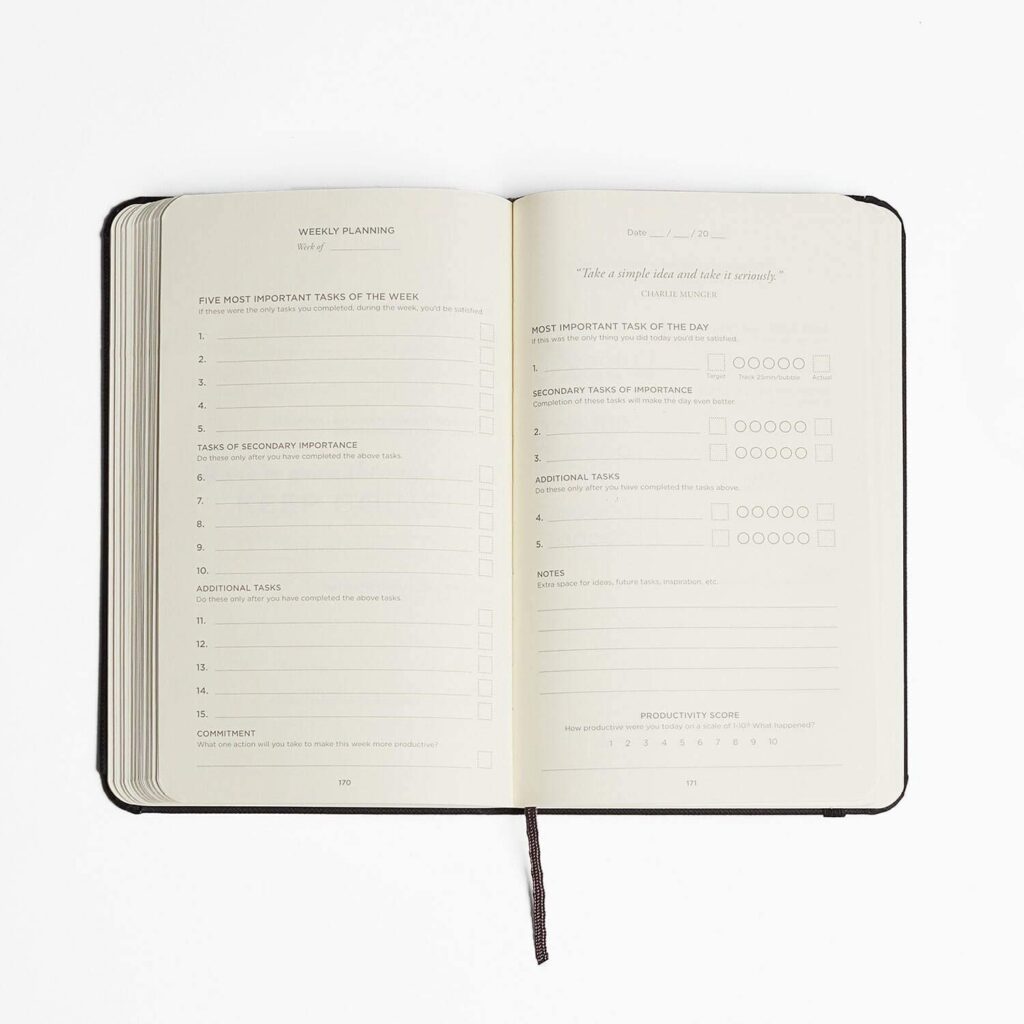 WEEKLY PLANNING
Week of
FIVE MOST IMPORTANT TASKS OF THE WEEK
If these were the only tasks you completed, during the week, you'd be satisfied.
1.
2.
3.
4.
5.
TASKS OF SECONDARY IMPORTANCE
Do these only after you have completed the above tasks.
6.
7.
8.
9.
10.
ADDITIONAL TASKS
Do these only after you have completed the above tasks.
11.
12.
13.
14.
15.
COMMITMENT
What one action will you take to make this week more productive?
170
Date ___ / ___ / 20 ___
"Take a simple idea and take it seriously."
CHARLIE MUNGER
MOST IMPORTANT TASK OF THE DAY
If this was the only thing you did today you'd be satisfied.
1.
Target Track 25min/bubble Actual
SECONDARY TASKS OF IMPORTANCE
Completion of these tasks will make the day even better.
2.
3.
ADDITIONAL TASKS
Do these only after you have completed the tasks above.
4.
5.
NOTES
Extra space for ideas, future tasks, inspiration, etc.
PRODUCTIVITY SCORE
How productive were you today on a scale of 1-10? What happened?
1 2 3 4 5 6 7 8 9 10
171